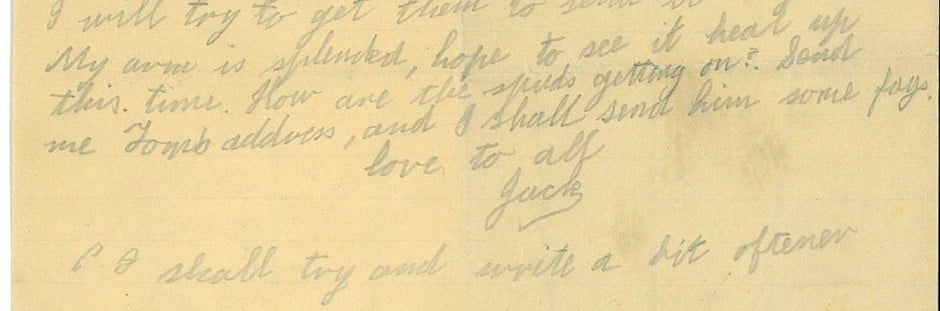 I will try to get them to send it
My arm is splended, hope to see it heal up
this. time. How are the spuds getting on? Send
me Toms address, and I shall send him some fags.
love to all
Jack
P S shall try and write a bit oftener